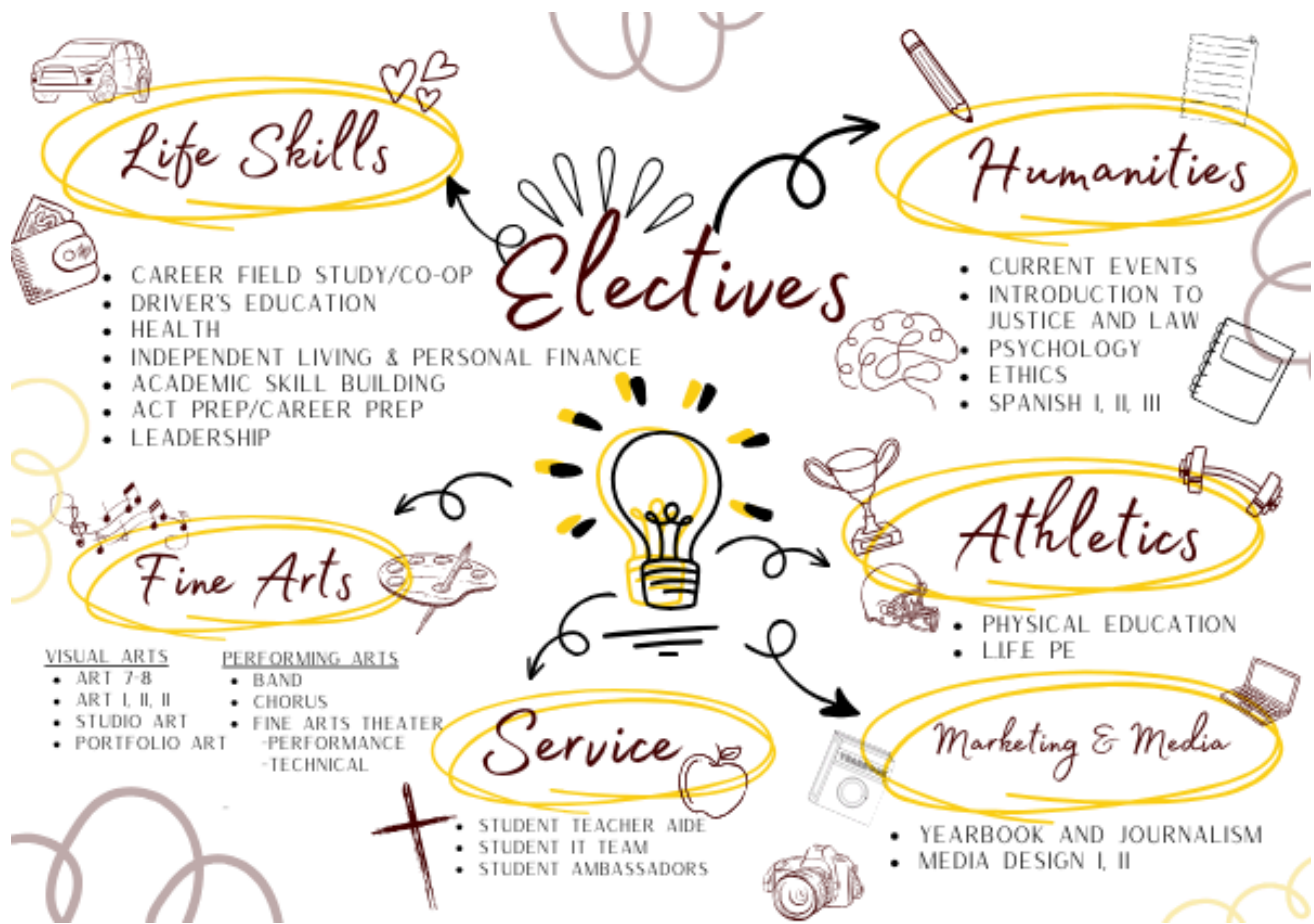 Electives
Life Skills
• CAREER FIELD STUDY/CO-OP
• DRIVER'S EDUCATION
• HEALTH
• INDEPENDENT LIVING & PERSONAL FINANCE
• ACADEMIC SKILL BUILDING
• ACT PREP/CAREER PREP
• LEADERSHIP
Humanities
• CURRENT EVENTS
• INTRODUCTION TO
JUSTICE AND LAW
• PSYCHOLOGY
• ETHICS
• SPANISH I, II, III
Fine Arts
VISUAL ARTS
• ART 7-8
• ART I, II, II
• STUDIO ART
• PORTFOLIO ART
PERFORMING ARTS
• BAND
• CHORUS
• FINE ARTS THEATER
-PERFORMANCE
-TECHNICAL
Athletics
• PHYSICAL EDUCATION
• L.I.F.E PE
Service
• STUDENT TEACHER AIDE
• STUDENT IT TEAM
• STUDENT AMBASSADORS
Marketing & Media
• YEARBOOK AND JOURNALISM
• MEDIA DESIGN I, II